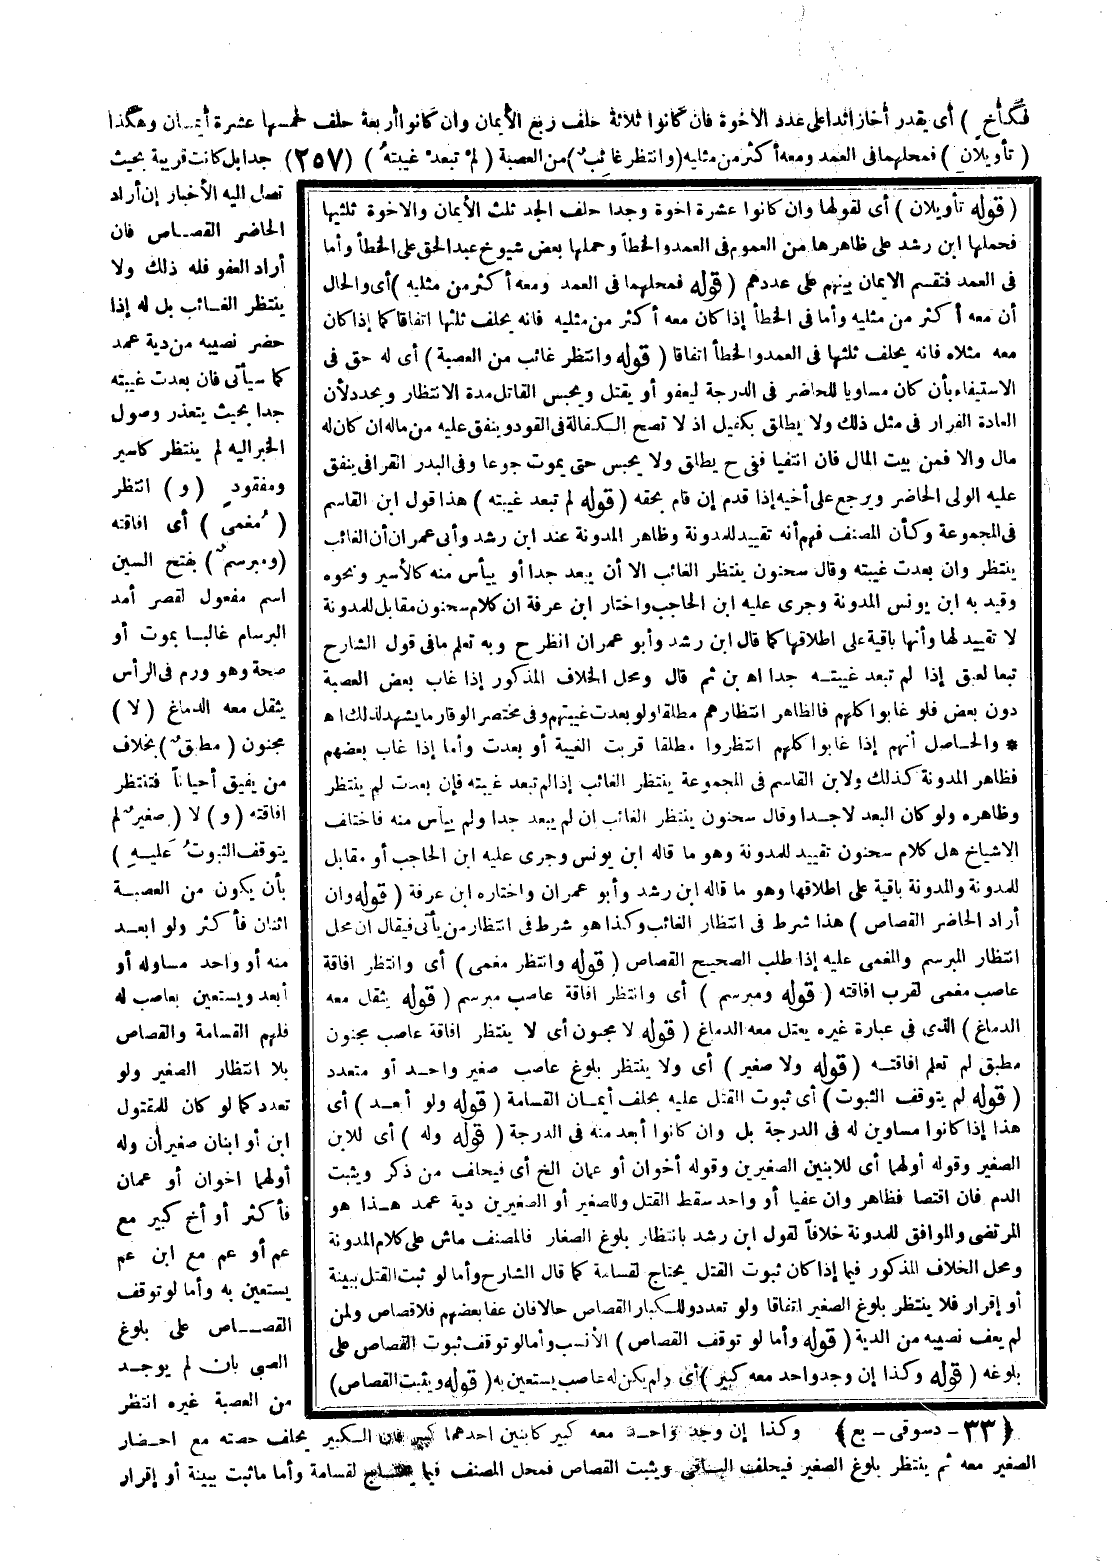 فكأخ ) أى يقدر أخا زائدا على عدد الأخوة فان كانوا ثلاثة حلف ربع الأيمان وان كانوا أربعة حلف خمسها عشرة أيمـان وهكذا
( تأويلان ) فمحلهما فى العمد ومعه أكثر من مثليه (وانتظر غائب ) من العصبة ( لم تبعد غيبته ) (٢٥٧) جدا بل كانت قريبة بحيث
تصل اليه الأخبار إن أراد
الحاضر القصـاص فان
أراد العفو فله ذلك ولا
ينتظر الغـائب بل له إذا
حضر نصيبه من دية عمد
كما سيأتى فان بعدت غيبته
جدا بحيث يتعذر وصول
الخبر اليه لم ينتظر كأسير
ومفقود ( و ) انتظر
( مغمى ) أى افاقته
(ومبرسم ) بفتح السين
اسم مفعول لقصر أمد
البرسام غالبـا بموت أو
صحة وهو ورم فى الرأس
يثقل معه الدماغ ( لا )
مجنون ( مطبق ) بخلاف
من يفيق أحياناً فتنتظر
افاقته ( و ) لا ( صغير لم
يتوقف الثبوت عليـه )
بأن يكون من العصبـة
اثنان فأكثر ولو ابعـد
منه أو واحد مساو له أو
أبعد ويستعين بعاصب له
فلهم القسامة والقصاص
بلا انتظار الصغير ولو
تعدد كما لو كان للمقتول
ابن أو ابنان صغيران وله
أولهما اخوان أو عمان
فأكثر أو أخ كبير مع
عم أو عم مع ابن عم
يستعين به وأما لو توقف
القصــاص على بلوغ
الصبى بان لم يوجـد
من العصبة غيره انتظر
( قوله تأويلان ) أى لقولها وان كانوا عشرة اخوة وجدا حلف الجد ثلث الأيمان والاخوة ثلثيها
فحملها ابن رشد على ظاهرها من العموم فى العمد والخطأ وحملها بعض شيوخ عبد الحق على الخطأ وأما
فى العمد فتقسم الايمان بينهم على عددهم ( قوله فمحلهما فى العمد ومعه أكثر من مثليه ) أى والحال
أن معه أكثر من مثليه وأما فى الخطأ إذا كان معه أكثر من مثليه فانه يحلف ثلثها اتفاقا كما إذا كان
معه مثلاه فانه يحلف ثلثها فى العمد والخطأ اتفاقا ( قوله وانتظر غائب من العصبة ) أى له حق فى
الاستيفاء بأن كان مساويا للحاضر فى الدرجة ليعفو أو يقتل ويحبس القاتل مدة الانتظار ويحدد لأن
العادة الفرار فى مثل ذلك ولا يطلق بكفيل اذ لا تصح الكفالة فى القود وينفق عليه من ماله ان كان له
مال والا فمن بيت المال فان انتفيا ففى ح يطلق ولا يحبس حتى يموت جوعا وفى البدر القرافى ينفق
عليه الولى الحاضر ويرجع على أخيه إذا قدم إن قام بحقه ( قوله لم تبعد غيبته ) هذا قول ابن القاسم
فى المجموعة وكأن المصنف فهم أنه تقييد للمدونة وظاهر المدونة عند ابن رشد وأبى عمران أن الغائب
ينتظر وان بعدت غيبته وقال سحنون ينتظر الغائب الا أن يبعد جدا أو ييأس منه كالأسير ونحوه
وقيد به ابن يونس المدونة وجرى عليه ابن الحاجب واختار ابن عرفة ان كلام سحنون مقابل للمدونة
لا تقييد لها وأنها باقية على اطلاقها كما قال ابن رشد وأبو عمران انظر ح وبه تعلم مافى قول الشارح
تبعا لعبق إذا لم تبعد غيبتـه جدا اه بن ثم قال ومحل الخلاف المذكور إذا غاب بعض العصبة
دون بعض فلو غابوا كلهم فالظاهر انتظارهم مطلقا ولو بعدت غيبتهم وفى مختصر الوقار ما يشهد لذلك اه
* والحـاصل أنهم إذا غابوا كلهم انتظروا مطلقا قربت الغيبة أو بعدت وأما إذا غاب بعضهم
فظاهر المدونة كذلك ولابن القاسم فى المجموعة ينتظر الغائب إذا لم تبعد غيبته فإن بعدت لم ينتظر
وظاهره ولو كان البعد لا جـدا وقال سحنون ينتظر الغائب ان لم يبعد جدا ولم ييأس منه فاختلف
الاشياخ هل كلام سحنون تقييد للمدونة وهو ما قاله ابن يونس وجرى عليه ابن الحاجب أو مقابل
للمدونة والمدونة باقية على اطلاقها وهو ما قاله ابن رشد وأبو عمران واختاره ابن عرفة ( قوله وان
أراد الحاضر القصاص ) هذا شرط فى انتظار الغائب وكذا هو شرط فى انتظار من يأتى فيقال ان محل
انتظار المبرسم والمغمى عليه إذا طلب الصحيح القصاص ( قوله وانتظر مغمى ) أى وانتظر افاقة
عاصب مغمى لقرب افاقته ( قوله ومبرسم ) أى وانتظر افاقة عاصب مبرسم ( قوله يثقل معه
الدماغ ) الذى فى عبارة غيره يعتل معه الدماغ ( قوله لا مجنون أى لا ينتظر افاقة عاصب مجنون
مطبق لم تعلم افاقتـه ( قوله ولا صغير ) أى ولا ينتظر بلوغ عاصب صغير واحـد أو متعدد
( قوله لم يتوقف الثبوت ) أى ثبوت القتل عليه بحلف أيمـان القسامة ( قوله ولو أبعـد ) أى
هذا إذا كانوا مساوين له فى الدرجة بل وان كانوا أبعد منه فى الدرجة ( قوله وله ) أى للابن
الصغير وقوله أولهما أى للابنين الصغيرين وقوله أخوان أو عمان الخ أى فيحلف من ذكر ويثبت
الدم فان اقتصا فظاهر وان عفيا أو واحد سقط القتل وللصغير أو الصغيرين دية عمد هـذا هو
المرتضى والموافق للمدونة خلافاً لقول ابن رشد بانتظار بلوغ الصغار فالمصنف ماش على كلام المدونة
ومحل الخلاف المذكور فيما إذا كان ثبوت القتل يحتاج لقسامة كما قال الشارح وأما لو ثبت القتل ببينة
أو إقرار فلا ينتظر بلوغ الصغير اتفاقا ولو تعدد وللكبار القصاص حالا فان عفا بعضهم فلا قصاص ولمن
لم يعف نصيبه من الدية ( قوله وأما لو توقف القصاص ) الأنسب وأما لو توقف ثبوت القصاص على
بلوغه ( قوله وكذا إن وجد واحد معه كبير ) أى ولم يكن له عاصب يستعين به ( قوله ويثبت القصاص )
﴿ ٣٣ - دسوقى - بع ﴾ وكذا إن وجد واحـد معه كبير كابنين احدهما كبير فان الـكبير يحلف حصته مع احـضار
الصغير معه ثم ينتظر بلوغ الصغير فيحلف البـاقى ويثبت القصاص فمحل المصنف فيما يحتـاج لقسامة وأما ما ثبت ببينة أو إقرار